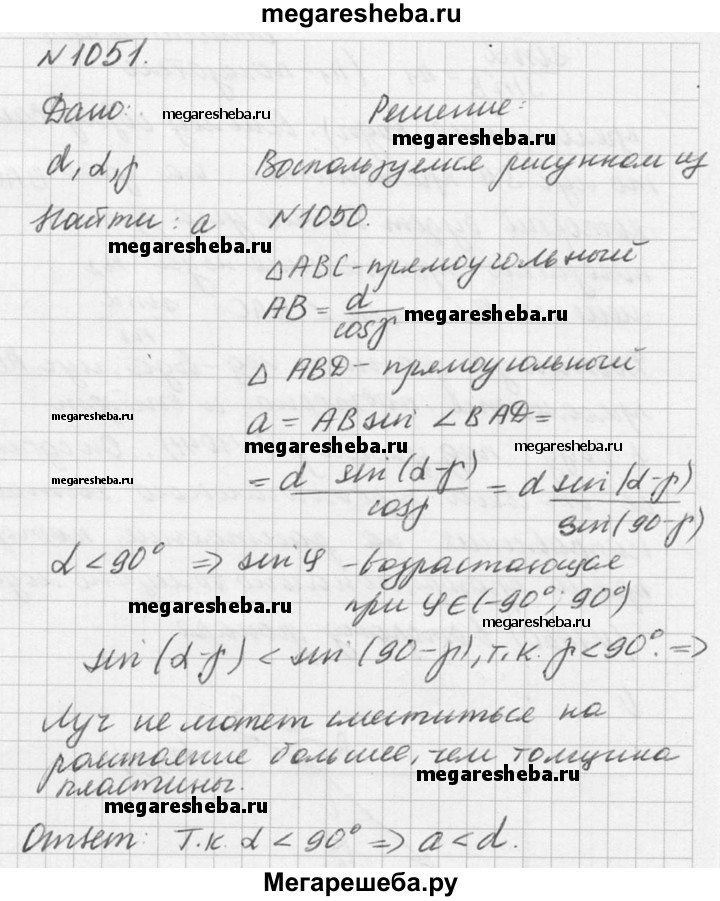 megaresheba.ru
№1051.
Дано: megaresheba.ru Решение:
megaresheba.ru
d, α, γ Воспользуемся рисунком из
Найти: a №1050.
megaresheba.ru
△ABC - прямоугольный
AB = d/cosγ megaresheba.ru
△ ABD - прямоугольный
megaresheba.ru a = AB sin ∠BAD =
megaresheba.ru megaresheba.ru
megaresheba.ru = d sin(α-γ)/cosγ = d sin(α-γ)/sin(90-γ)
α < 90° => sin φ - возрастающая
megaresheba.ru при φ ∈ (-90°; 90°)
megaresheba.ru
sin(α-γ) < sin(90-γ), т.к. γ < 90°. =>
Луч не может сместиться на
расстояние большее, чем толщина
пластины. megaresheba.ru
megaresheba.ru
Ответ: т.к. α < 90° => a < d.
Мегарешеба.ру